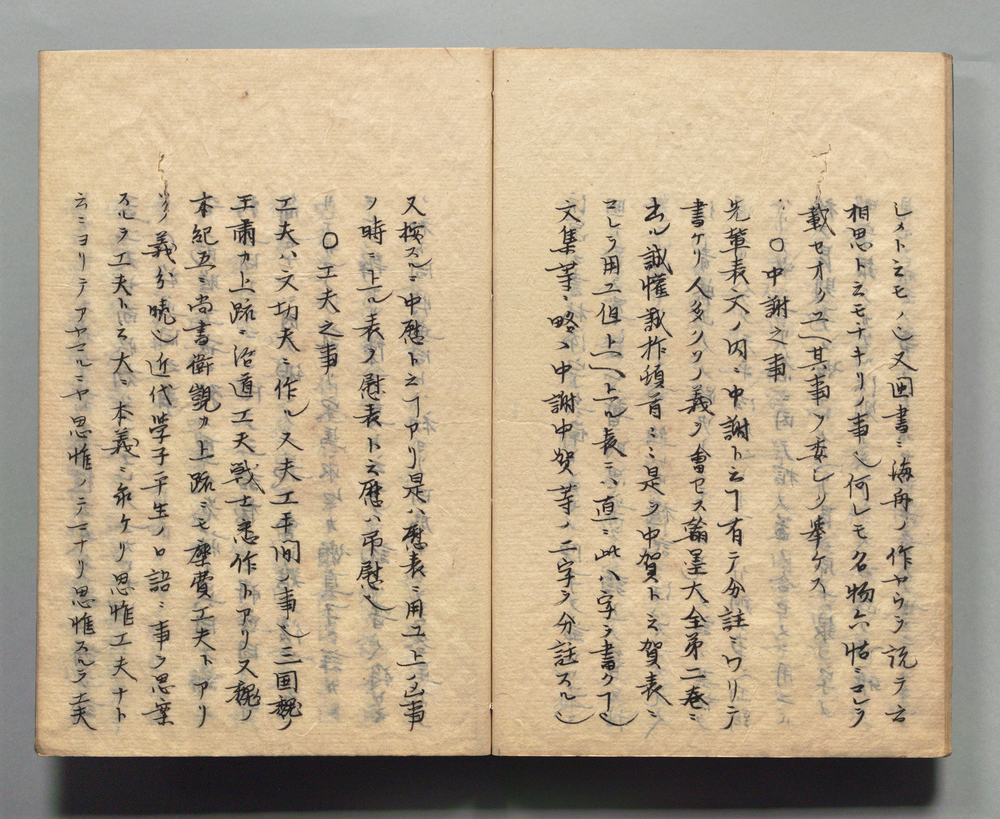 シメト云モノ也又画書ニ海舟ノ作ヤウヲ説テ云
相思ト云モチキリノ事也何レモ名物六帖ニコレヲ
載セオクユヘ其事ヲ委シク挙ケス
○中謝之事
先輩表文ノ内ニ中謝ト云ヿ有テ分註ニワリテ
書ケリ人多クソノ義ヲ會セス翰墨大全第二巻ニ
出ル誠懽誠抃頓首ニニ是ヲ中賀ト云賀表ニ
コレヲ用ユ但上ヘ上ル表ニハ直ニ此八字ヲ書クヿ也
文集等ニ略シ中謝中賀等ノ二字ヲ分註スル也
又按スルニ中慰ト云ヿアリ是ハ慰表ニ用ユ上ノ凶事
ノ時ニ上ル表ノ慰表ト云慰ハ吊慰也
○工夫之事
工夫ハ又功夫ニ作ル又夫工平間ノ事也三国魏ノ
王肅カ上疏ニ治道工夫戦士悉作トアリ又魏ノ
本紀五ニ尚書衛覬カ上疏ニモ糜費工夫トアリ
ソノ義分曉也近代学子平生ノ口語ニ事ヲ思案
スルヲ工夫ト云大ニ本義ニ永ケリ思惟工夫ナト
云ニヨリテアヤマルニヤ思惟ノテニナリ思惟スルヲ工夫